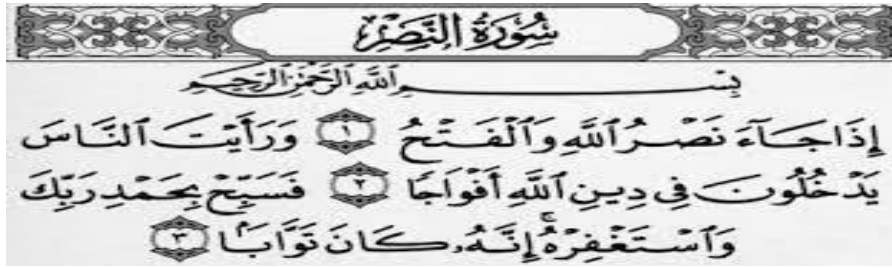 سُورَةُ النَّصْرِ
بِسْمِ ٱللَّهِ ٱلرَّحْمَٰنِ ٱلرَّحِيمِ
إِذَا جَآءَ نَصْرُ ٱللَّهِ وَٱلْفَتْحُ ١ وَرَأَيْتَ ٱلنَّاسَ
يَدْخُلُونَ فِى دِينِ ٱللَّهِ أَفْوَاجًا ٢ فَسَبِّحْ بِحَمْدِ رَبِّكَ
وَٱسْتَغْفِرْهُ ۚ إِنَّهُۥ كَانَ تَوَّابَۢا ٣